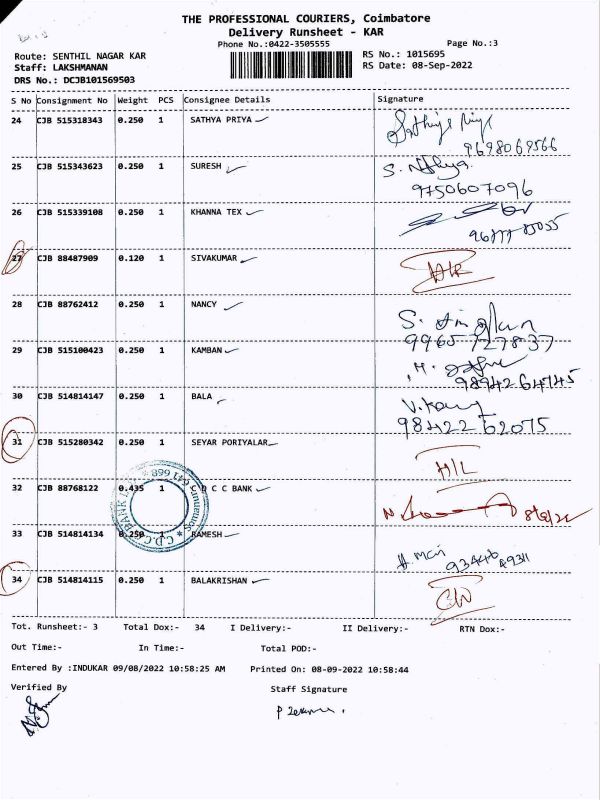 THE PROFESSIONAL COURIERS, Coimbatore
Delivery Runsheet - KAR
Phone No.:0422-3505555 Page No.:3
Route: SENTHIL NAGAR KAR RS No.: 1015695
Staff: LAKSHMANAN RS Date: 08-Sep-2022
DRS No.: DCJB101569503
S No Consignment No Weight PCS Consignee Details Signature
24 CJB 515318343 0.250 1 SATHYA PRIYA
9698069566
25 CJB 515343623 0.250 1 SURESH
9750607096
26 CJB 515339108 0.250 1 KHANNA TEX
27 CJB 88487909 0.120 1 SIVAKUMAR
28 CJB 88762412 0.250 1 NANCY
9965727837
29 CJB 515100423 0.250 1 KAMBAN
9894264745
30 CJB 514814147 0.250 1 BALA
9842262075
31 CJB 515280342 0.250 1 SEYAR PORIYALAR
H/L
32 CJB 88768122 0.435 1 C D C C BANK
33 CJB 514814134 0.250 1 RAMESH
34 CJB 514814115 0.250 1 BALAKRISHAN
Tot. Runsheet:- 3 Total Dox:- 34 I Delivery:- II Delivery:- RTN Dox:-
Out Time:- In Time:- Total POD:-
Entered By :INDUKAR 09/08/2022 10:58:25 AM Printed On: 08-09-2022 10:58:44
Verified By Staff Signature